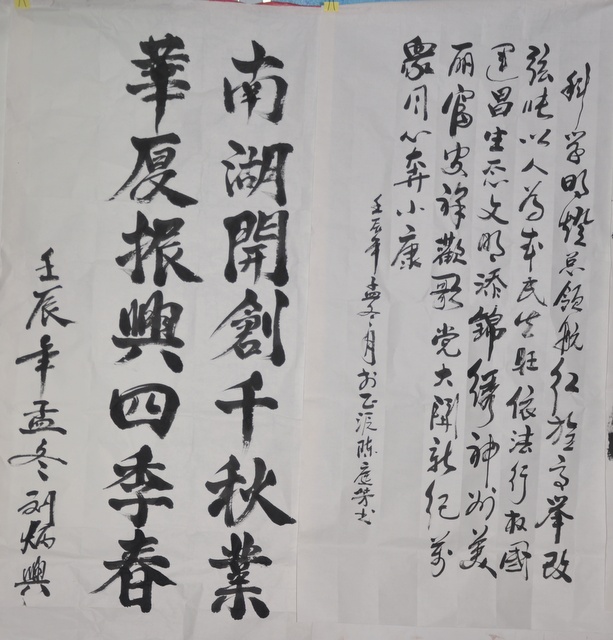 科学明燈总领航红旗高举改
弦张以人为本民生旺依法行权国
運昌生态文明添锦绣神州美
丽富安祥歡歌党大開新纪萬
眾同心奔小康
壬辰年孟冬月於正源陈庭芳书
南湖開創千秋業
華厦振興四季春
壬辰年孟冬刘炳興